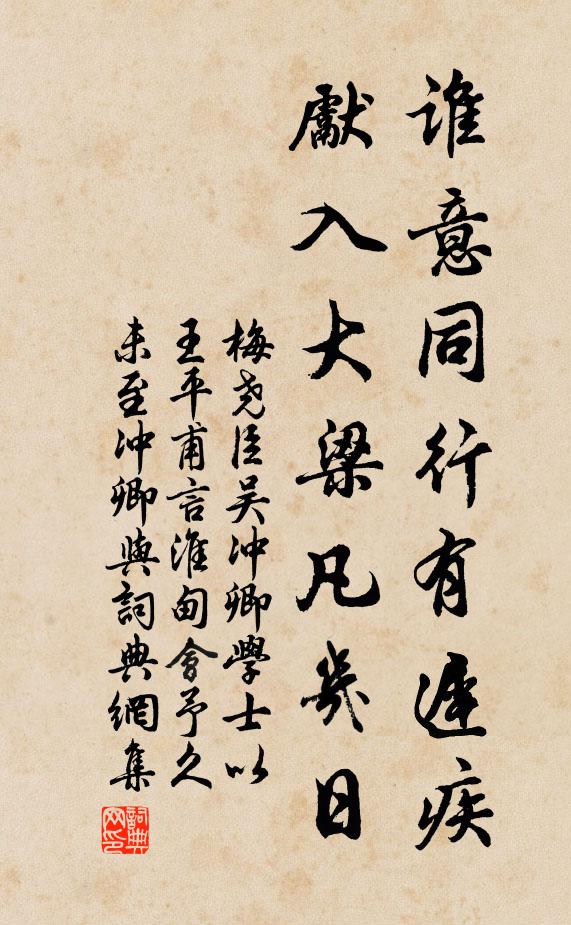 誰意同行有遲疾
獻入大梁凡幾日
梅尧臣吴冲卿學士以
王平甫言淮甸會予久
未至冲卿與詞典網集
詞典网印